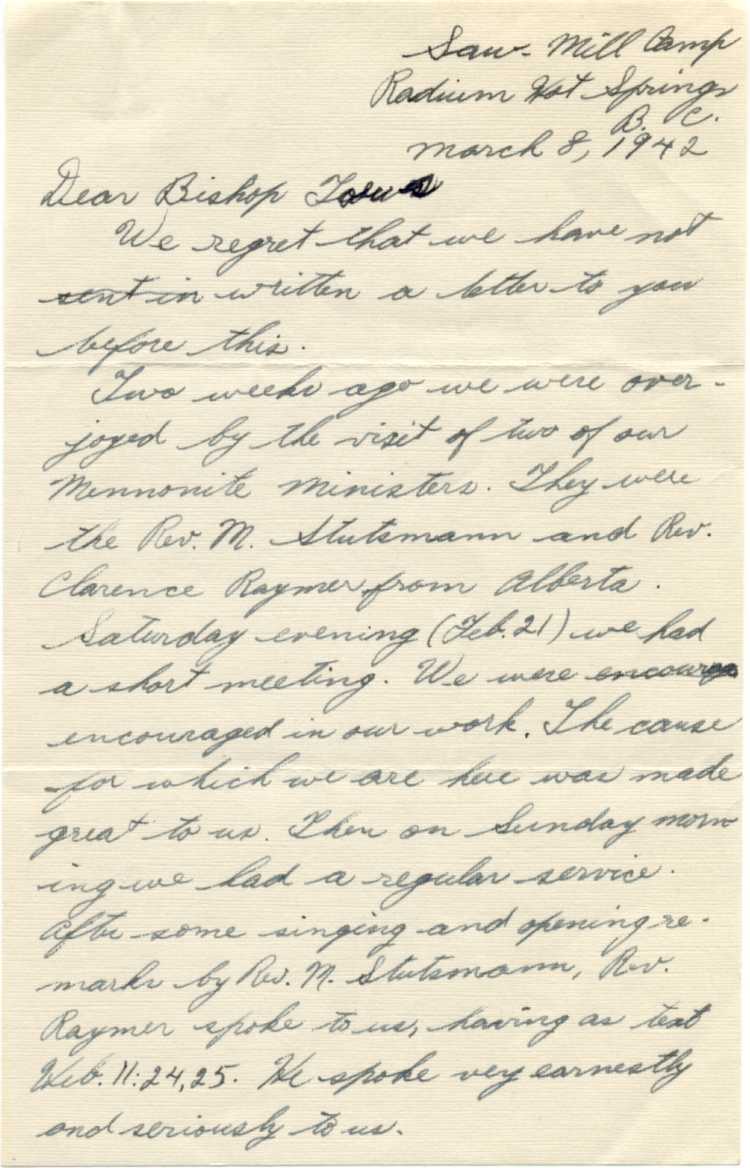 Saw-Mill Camp
Radium Hot Springs
B. C.
March 8, 1942
Dear Bishop
We regret that we have not
sent in written a letter to you
before this.
Two weeks ago we were over-
joyed by the visit of two of our
Mennonite ministers. They were
the Rev. M. Stutsmann and Rev.
Clarence Raymer from Alberta.
Saturday evening (Feb. 21) we had
a short meeting. We were encourage
encouraged in our work. The cause
for which we are here was made
great to us. Then on Sunday morn
ing we had a regular service.
After some singing and opening re-
marks by Rev. M. Stutsmann, Rev.
Raymer spoke to us, having as text
Heb. 11:24,25. He spoke very earnestly
and seriously to us.